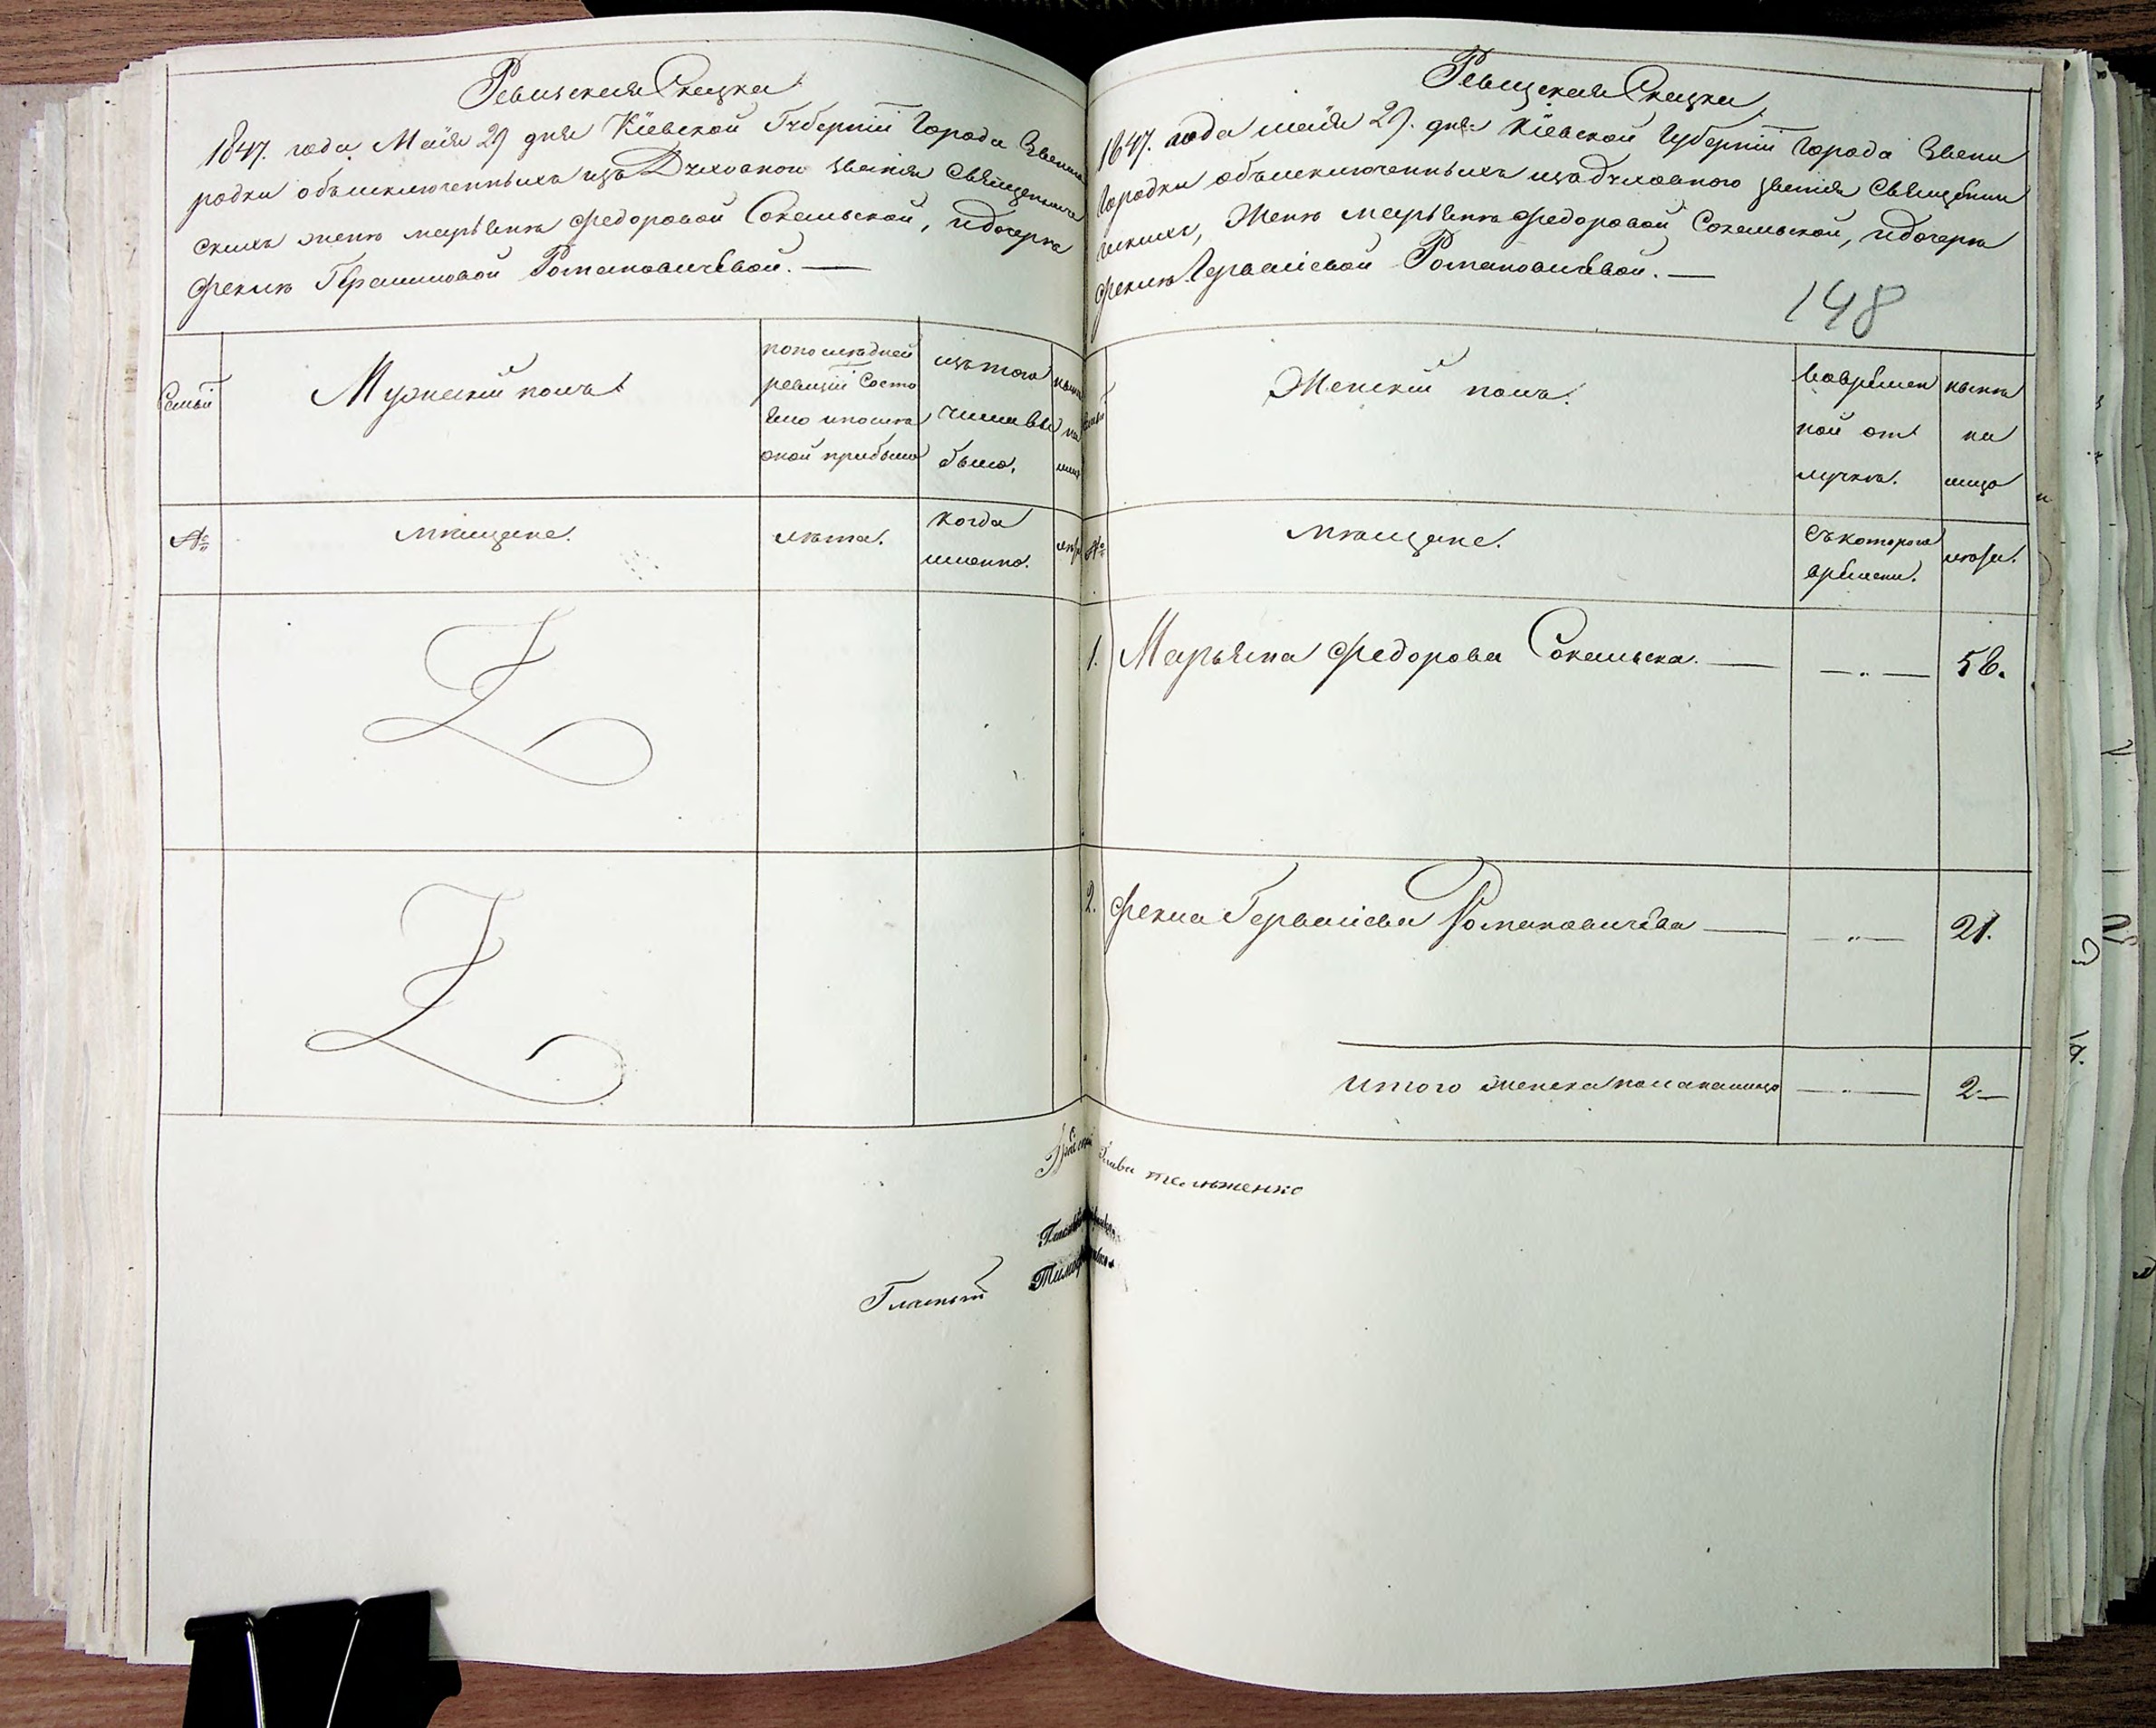 Ревизская Сказка
1847. года Маия 29 дня Кіевской Губерніи Города Звени
родки объ исключенныхъ изъ Духовнои званія Священниче
скихъ жену марьяну Федоровой Сокальской, и дочеръ
Феклю Герасимовой Романовичевой. —
Семьи
Мужескій полъ
по последней
ревизіи состо
яло и после
оной прибыло
изъ того
числа вы
было.
ныне
на
лицо
№
мещане.
лета.
когда
именно.
лета
Ревизская Сказка
1847. года маия 29. дня Кіевской Губерніи города Звени
городки объ исключенныхъ изъ духовного званія Священни
ческихъ, Жену марьяну Федоровой Сокальской, и дочеръ
Феклю Гервасіевой Романовичевой. —
148
Семьи
Женскій полъ.
во времен
ной от
лучке.
ныне
на
лицо
№
мещане.
съ которого
времени.
лета.
1. Марьяна Федорова Сокальска. — — „ — 56.
2. Фекла Гервасіева Романовичева — — „ — 21.
итого женска пола на лицо — „ — 2 —
Глава тельженко
Гласный